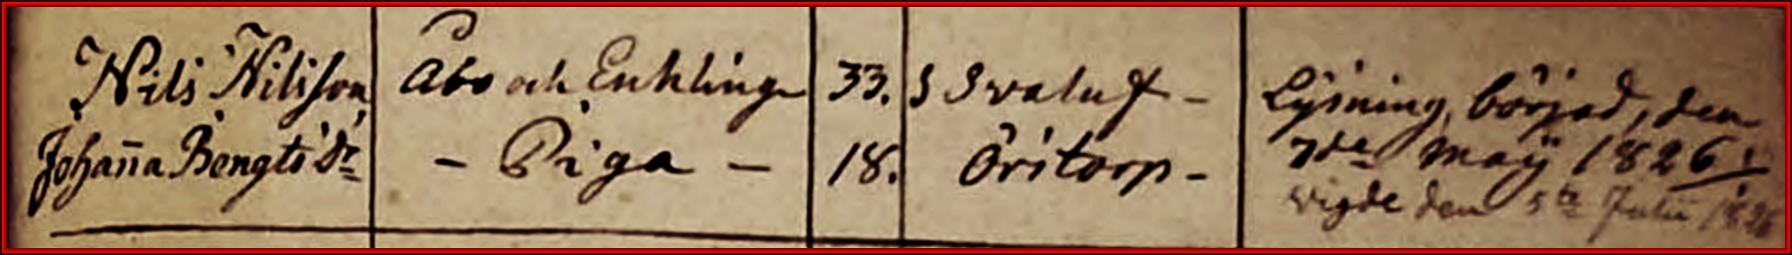 Nils Nilsson Åbo och Enkling 33. S Svaluf -
Johan̄a Bengts dr - Piga - 18. Öritorp -
Lysning, börjad, den
7de Maÿ 1826:
vigde den 5te Julii 1826